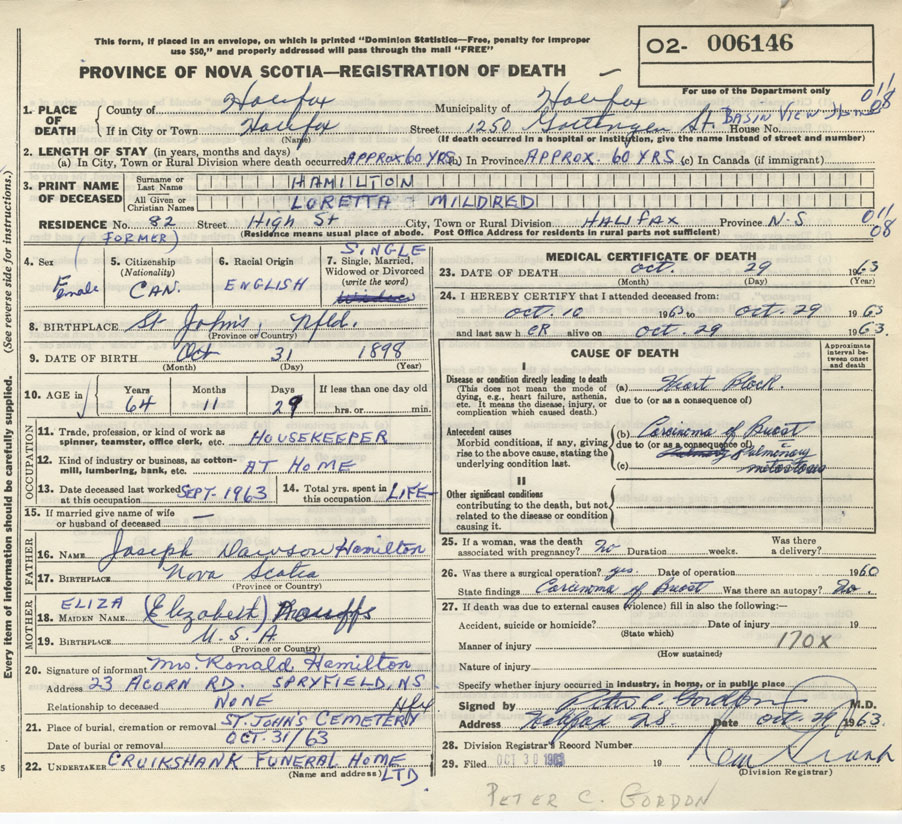 This form, if placed in an envelope, on which is printed "Dominion Statistics—Free, penalty for improper
use $50," and properly addressed will pass through the mail "FREE"
O2- 006146
PROVINCE OF NOVA SCOTIA—REGISTRATION OF DEATH
For use of the Department only
1. PLACE OF DEATH
County of Halifax Municipality of Halifax 011 08
If in City or Town Halifax Street 1250 Gottingen St. Basin View Home House No.
(Name) (If death occurred in a hospital or institution, give the name instead of street and number)
2. LENGTH OF STAY (in years, months and days)
(a) In City, Town or Rural Division where death occurred APPROX 60 YRS (b) In Province APPROX. 60 YRS (c) In Canada (if immigrant)
3. PRINT NAME OF DECEASED
Surname or Last Name HAMILTON
All Given or Christian Names LORETTA MILDRED
RESIDENCE No. 82 Street High St City, Town or Rural Division HALIFAX Province N-S 011 08
(FORMER) (Residence means usual place of abode. Post Office Address for residents in rural parts not sufficient)
4. Sex Female
5. Citizenship (Nationality) CAN.
6. Racial Origin ENGLISH
7. Single, Married, Widowed or Divorced (write the word) SINGLE
8. BIRTHPLACE St John's, Nfld.
(Province or Country)
9. DATE OF BIRTH Oct 31 1898
(Month) (Day) (Year)
10. AGE in Years 64 Months 11 Days 29 If less than one day old hrs. or min.
OCCUPATION
11. Trade, profession, or kind of work as spinner, teamster, office clerk, etc. HOUSEKEEPER
12. Kind of industry or business, as cotton-mill, lumbering, bank, etc. AT HOME
13. Date deceased last worked at this occupation SEPT-1963
14. Total yrs. spent in this occupation LIFE
15. If married give name of wife or husband of deceased —
FATHER
16. NAME Joseph Dawson Hamilton
17. BIRTHPLACE Nova Scotia
(Province or Country)
MOTHER
18. MAIDEN NAME ELIZA (Elizabeth)
19. BIRTHPLACE U.S.A
(Province or Country)
20. Signature of informant Mrs. Ronald Hamilton
Address 23 ACORN RD. SPRYFIELD, NS
Relationship to deceased NONE Hfx
21. Place of burial, cremation or removal ST. JOHN'S CEMETERY
Date of burial or removal OCT-31/63
22. UNDERTAKER CRUIKSHANK FUNERAL HOME LTD.
(Name and address)
MEDICAL CERTIFICATE OF DEATH
23. DATE OF DEATH Oct. 29 1963
(Month) (Day) (Year)
24. I HEREBY CERTIFY that I attended deceased from:
Oct. 10 1963 to Oct. 29 1963
and last saw h ER alive on Oct. 29 1963.
CAUSE OF DEATH
Approximate interval between onset and death
I
Disease or condition directly leading to death
(This does not mean the mode of
dying, e.g., heart failure, asthenia,
etc. It means the disease, injury, or
complication which caused death.)
(a) Heart Block.
due to (or as a consequence of)
Antecedent causes
Morbid conditions, if any, giving
rise to the above cause, stating the
underlying condition last.
(b) Carcinoma of Breast
due to (or as a consequence of)
(c) Pulmonary metastases
II
Other significant conditions
contributing to the death, but not
related to the disease or condition
causing it.
25. If a woman, was the death associated with pregnancy? No Duration weeks. Was there a delivery?
26. Was there a surgical operation? yes. Date of operation 1960
State findings Carcinoma of Breast Was there an autopsy? No.
27. If death was due to external causes (violence) fill in also the following:—
Accident, suicide or homicide? Date of injury 19
(State which)
Manner of injury 170X
(How sustained)
Nature of injury
Specify whether injury occurred in industry, in home, or in public place
Signed by Peter C. Gordon M.D.
Address Halifax N.S. Date Oct. 29 1963.
28. Division Registrar's Record Number
29. Filed OCT 30 1963 19
(Division Registrar)
PETER C. GORDON
Every item of information should be carefully supplied. (See reverse side for instructions.)
5